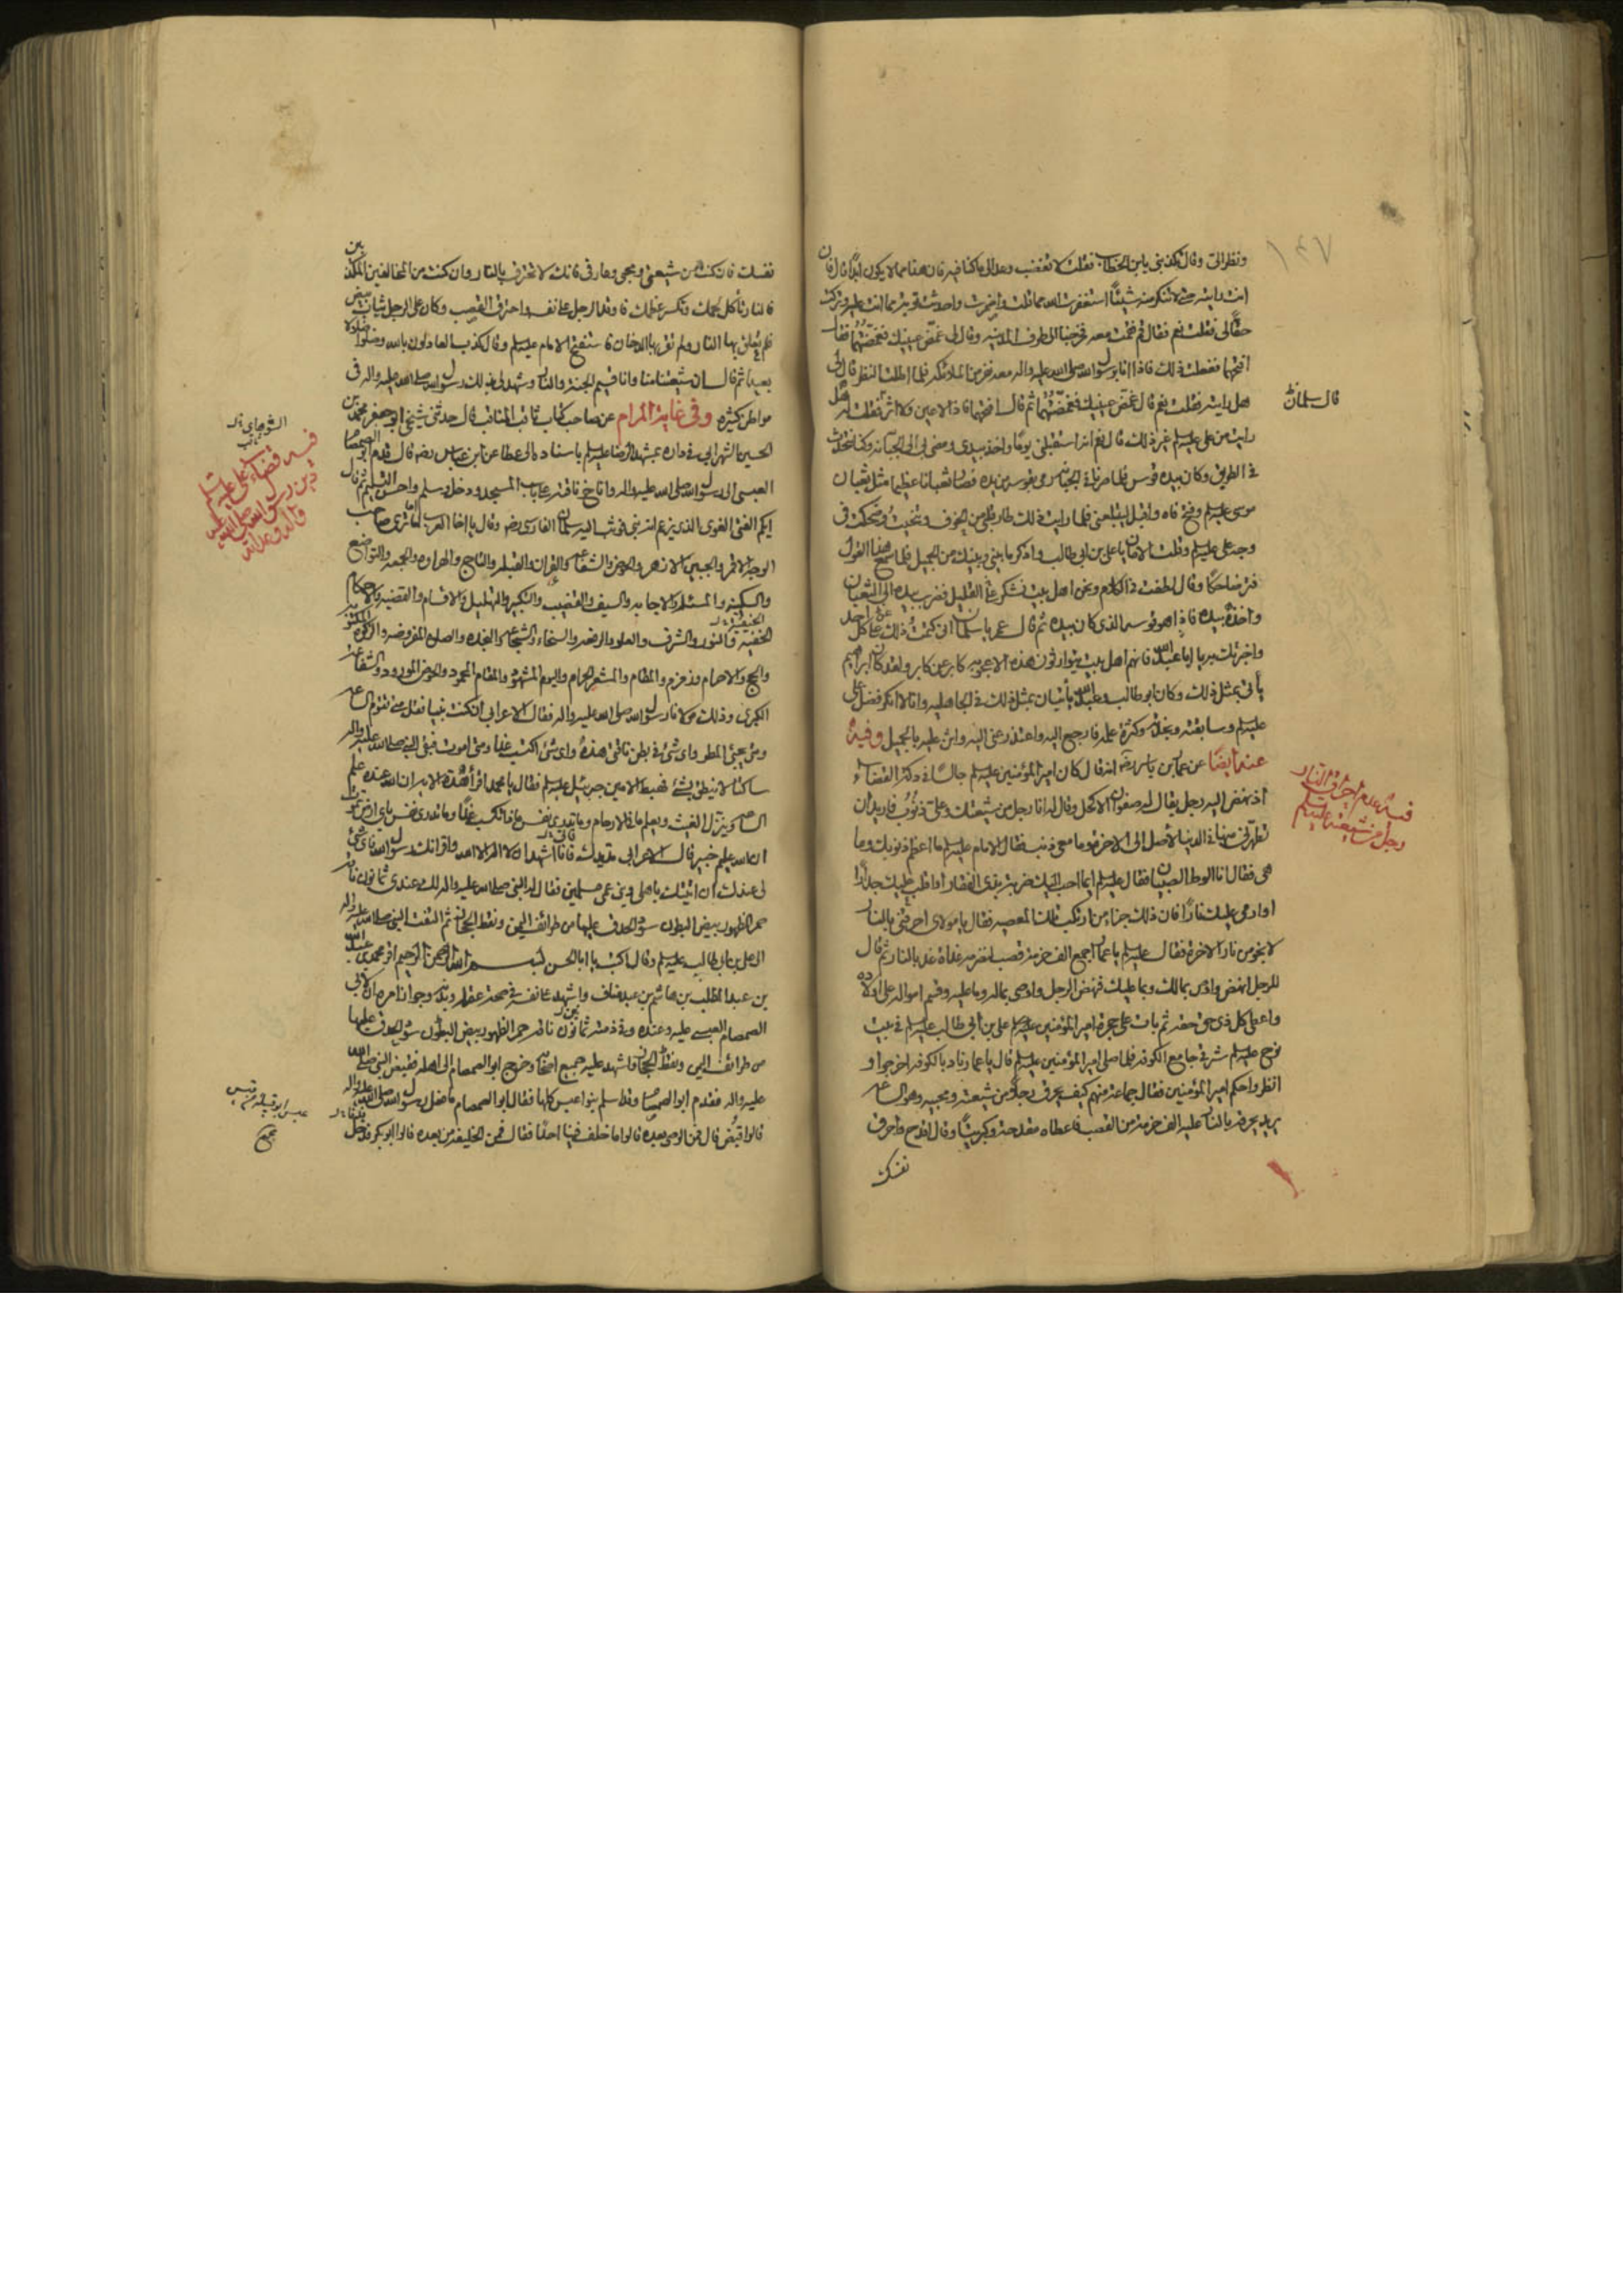 ١٤٧
ونظر الى وقال تكذبنى يابن الخطاب فقلت لا تغضب وعد الى ما كنا فيه فان هذا مما لا يكون ابدا قال فان
انت رايته حتى لا تنكر منه شيئا استغفرت الله مما قلت واضمرت واحدثت توبة مما انت عليه وتركت
حقا لى فقلت نعم فقال قم فقمت معه فخرجنا الى طرف المدينة وقال لى غمض عينيك فغمضتهما فقال
افتحهما ففعلت ذلك فاذا انا برسول الله صلى الله عليه واله معه نفر من الملائكة فلما اطلت النظر قال لى
هل رايته فقلت نعم قال غمض عينيك فغمضتهما ثم قال افتحهما فاذا لا عين ولا اثر فقلت له هل
قال سلمان
رايت من على عليه السلم غير ذلك قال نعم انه استقبلنى يوما واخذ بيدى ومضى بى الى الجبانة وكنا نتحدث
فى الطريق وكان بيده قوس فلما صرنا فى الجبانة رمى بقوسه من يده فصار ثعبانا عظيما مثل ثعبان
موسى عليه السلم وفتح فاه واقبل ليبتلعنى فلما رايت ذلك طار قلبى من الخوف وتنحيت وضحكت فى
وجه على عليه السلم وقلت الامان يا على بن ابى طالب واذكر ما بينى وبينك من الجميل فلما سمع هذا القول
فتر ضاحكا وقال لطفت فى الكلام ونحن اهل بيت نشكر على القليل فضرب بيده الى الثعبان
واخذه بيده فاذا هو قوسه الذى كان بيده ثم قال عمر يا سلمان انى كتمت ذلك عن كل احد
واخبرتك به يا ابا عبد الله فانهم اهل بيت يتوارثون هذه الاعجوبه كابر عن كابر ولقد كان ابراهيم
يأتى بمثل ذلك وكان ابو طالب وعبد الله يأتيان بمثل ذلك فى الجاهلية وانا لا انكر فضل على
عليه السلم وسابقته ونجدته وكثرة علمه فارجع اليه واعتذر عنى اليه واثن عليه بالجميل وفيه
عنه ايضا عن عمار بن ياسر رضه انه قال كان امير المؤمنين عليه السلم جالسا فى دكة القضاء
فيه عدم احراق النار
رجل من شيعته عليه السلم
اذ نهض اليه رجل يقال له صفوان الاكحل وقال له انا رجل من شيعتك وعلى ذنوب فاريد ان
تطهرنى منها فى الدنيا لأصل الى الاخرة وما معى ذنب فقال الامام عليه السلم ما اعظم ذنوبك وما
هى فقال انا الوط الصبيان فقال عليه السلم ايما احب اليك ضربة بذى الفقار او اقلب عليك جدارا
او ارمى عليك نارا فان ذلك جزاء من ارتكب تلك المعصيه فقال يا مولاى احرقنى بالنار
لانجو من نار الاخرة فقال عليه السلم يا عمار اجمع الف حزمة قصب لنضرمه غداة غد بالنار ثم قال
للرجل انهض واوص بمالك وبما عليك فنهض الرجل واوصى بماله وما عليه وقسم امواله على اولاده
واعطى كل ذى حق حقه ثم بات على حجرة امير المؤمنين عليه السلم على بن ابى طالب عليه السلم فى بيت
نوح عليه السلم شرقى جامع الكوفه فلما صلى امير المؤمنين عليه السلم قال يا عمار ناد بالكوفه اخرجوا و
انظروا حكم امير المؤمنين فقال جماعة منهم كيف يحرق رجلا من شيعته ومحبيه وهو الساعة
يريد يحرقه بالنار عليه الف حزمة من القصب فاعطاه مقدحة وكبريتا وقال اقدح واحرق
نفسك
نفسك فان كنت من شيعتى ومحبى وعارفى فانك لا تحترق بالنار وان كنت من المخالفين المكذبين
فالنار تأكل لحمك وتكسر عظمك فاوقد الرجل على نفسه واحترق القصب وكان على الرجل ثياب بيض
فلم تعلق بها النار ولم تقربها الدخان فاستفتح الامام عليه السلم وقال كذب العادلون بالله وضلوا ضلالا
بعيدا ثم قال ان شيعتنا منا وانا قسيم الجنة والنار وشهد لى بذلك رسول الله صلى الله عليه واله فى
مواطن كثيرة وفى غاية المرام عن صاحب كتاب ثاقب المناقب قال حدثنى شيخى ابو جعفر محمد بن
الحسين الشهرابى فى داره بمشهد الرضا عليه السلم باسناده الى عطا عن ابن عباس رضه قال قدم ابو الصمصام
فيه قضاء على عليه السلم
دين رسول الله صلى الله عليه
واله وعداته
العبسى الى رسول الله صلى الله عليه واله واناخ ناقته على باب المسجد ودخل وسلم واحسن التسليم ثم قال
ايكم الفتى الغوى الذى يزعم انه نبى فوثب اليه سلمان الفارسى رضه وقال يا اخا العرب اما ترى صاحب
الوجه الاقمر والجبين الازهر والحوض والشفاعة والقران والقبلة والتاج والهراوه والجمعه والتواضع
والسكينة والمسئله والاجابه والسيف والقضيب والتكبير والتهليل والاقسام والقضيه والاحكام
الحنيفية والنور والشرف والعلو والرفعه والسخاء والشجاعة والنجده والصلوة المفروضه والزكوة المكتوبه
والحج والاحرام وزمزم والمقام والمشعر الحرام واليوم المشهود والمقام المحمود والحوض المورود والشفاعة
الكبرى وذلك مولانا رسول الله صلى الله عليه واله فقال الاعرابى ان كنت نبيا فقل متى تقوم الساعة
ومتى يجيئ المطر واى شئ فى بطن ناقتى هذه واى شئ اكتسب غدا ومتى اموت فبقى النبى صلى الله عليه واله
ساكتا لا ينطق بشئ فهبط الامين جبرئيل عليه السلم فقال يا محمد اقرأ هذه الاية ان الله عنده علم
الساعة وينزل الغيث ويعلم ما فى الارحام وما تدرى نفس ماذا تكسب غدا وما تدرى نفس باى ارض تموت
ان الله عليم خبير قال الاعرابى مد يدك فانا اشهد ان لا اله الا الله واقر انك رسول الله فاى شئ
لى عندك ان اتيتك باهلى وبنى عمى مسلمين فقال له النبى صلى الله عليه واله لك عندى ثمانون ناقة
حمر الظهور بيض البطون سود الحدق عليها من طرائف اليمن ونقط الحجاز ثم التفت النبى صلى الله عليه واله
الى على بن ابى طالب عليه السلم وقال اكتب يا ابا الحسن بسم الله الرحمن الرحيم اقر محمد بن عبد الله
بن عبد المطلب بن هاشم بن عبد مناف واشهد على نفسه فى صحة عقله وبدنه وجواز امره ان لابى
الصمصام العبسى عليه وعنده وفى ذمته ثمانون ناقة حمر الظهور بيض البطون سود الحدق عليها
من طرائف اليمن ونقط الحجاز واشهد عليه جميع اصحابه وخرج ابو الصمصام الى اهله فقبض النبى صلى الله
عليه واله فقدم ابو الصمصام وقد اسلم بنو عبس كلها فقال ابو الصمصام ما فعل رسول الله صلى الله عليه واله
عبس ابو قبيلة من قيس
مجمع
قالوا قبض قال فمن الوصى بعده قالوا ما خلف فينا احدا قال فمن الخليفة من بعده قالوا ابو بكر فدخل